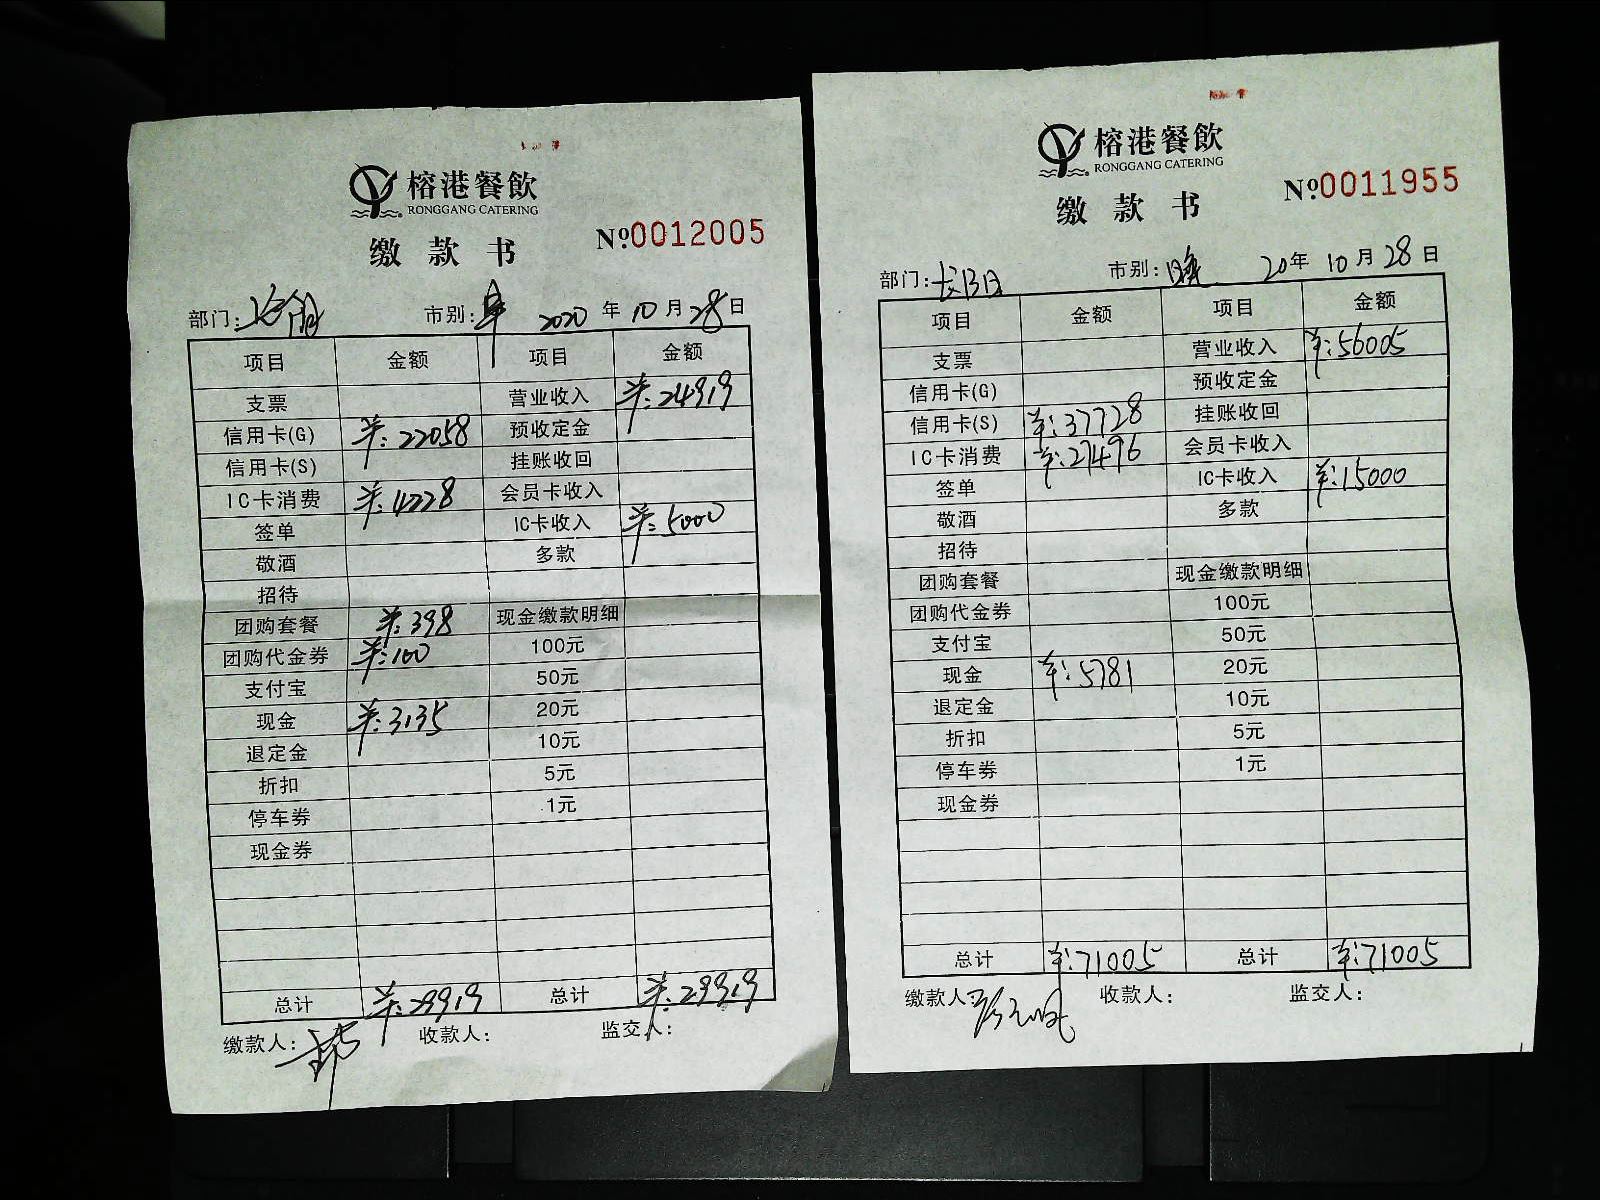 榕港餐飲
RONGGANG CATERING
缴款书
№0012005
部门: 市别: 早 2020年10月28日
项目 金额 项目 金额
支票 营业收入 ¥:24919
信用卡(G) ¥:22058 预收定金
信用卡(S) 挂账收回
IC卡消费 ¥:4228 会员卡收入
签单 IC卡收入 ¥:5000
敬酒 多款
招待
团购套餐 ¥:398 现金缴款明细
团购代金券 ¥:100 100元
支付宝 50元
现金 ¥:3135 20元
退定金 10元
折扣 5元
停车券 1元
现金券
总计 ¥:29919 总计 ¥:29919
缴款人: 收款人: 监交人:
榕港餐飲
RONGGANG CATERING
缴款书
№0011955
部门: 市别: 晚 20年10月28日
项目 金额 项目 金额
支票 营业收入 ¥:56005
信用卡(G) 预收定金
信用卡(S) ¥:37728 挂账收回
IC卡消费 ¥:27496 会员卡收入
签单 IC卡收入 ¥:15000
敬酒 多款
招待
团购套餐 现金缴款明细
团购代金券 100元
支付宝 50元
现金 ¥:5781 20元
退定金 10元
折扣 5元
停车券 1元
现金券
总计 ¥:71005 总计 ¥:71005
缴款人: 收款人: 监交人: